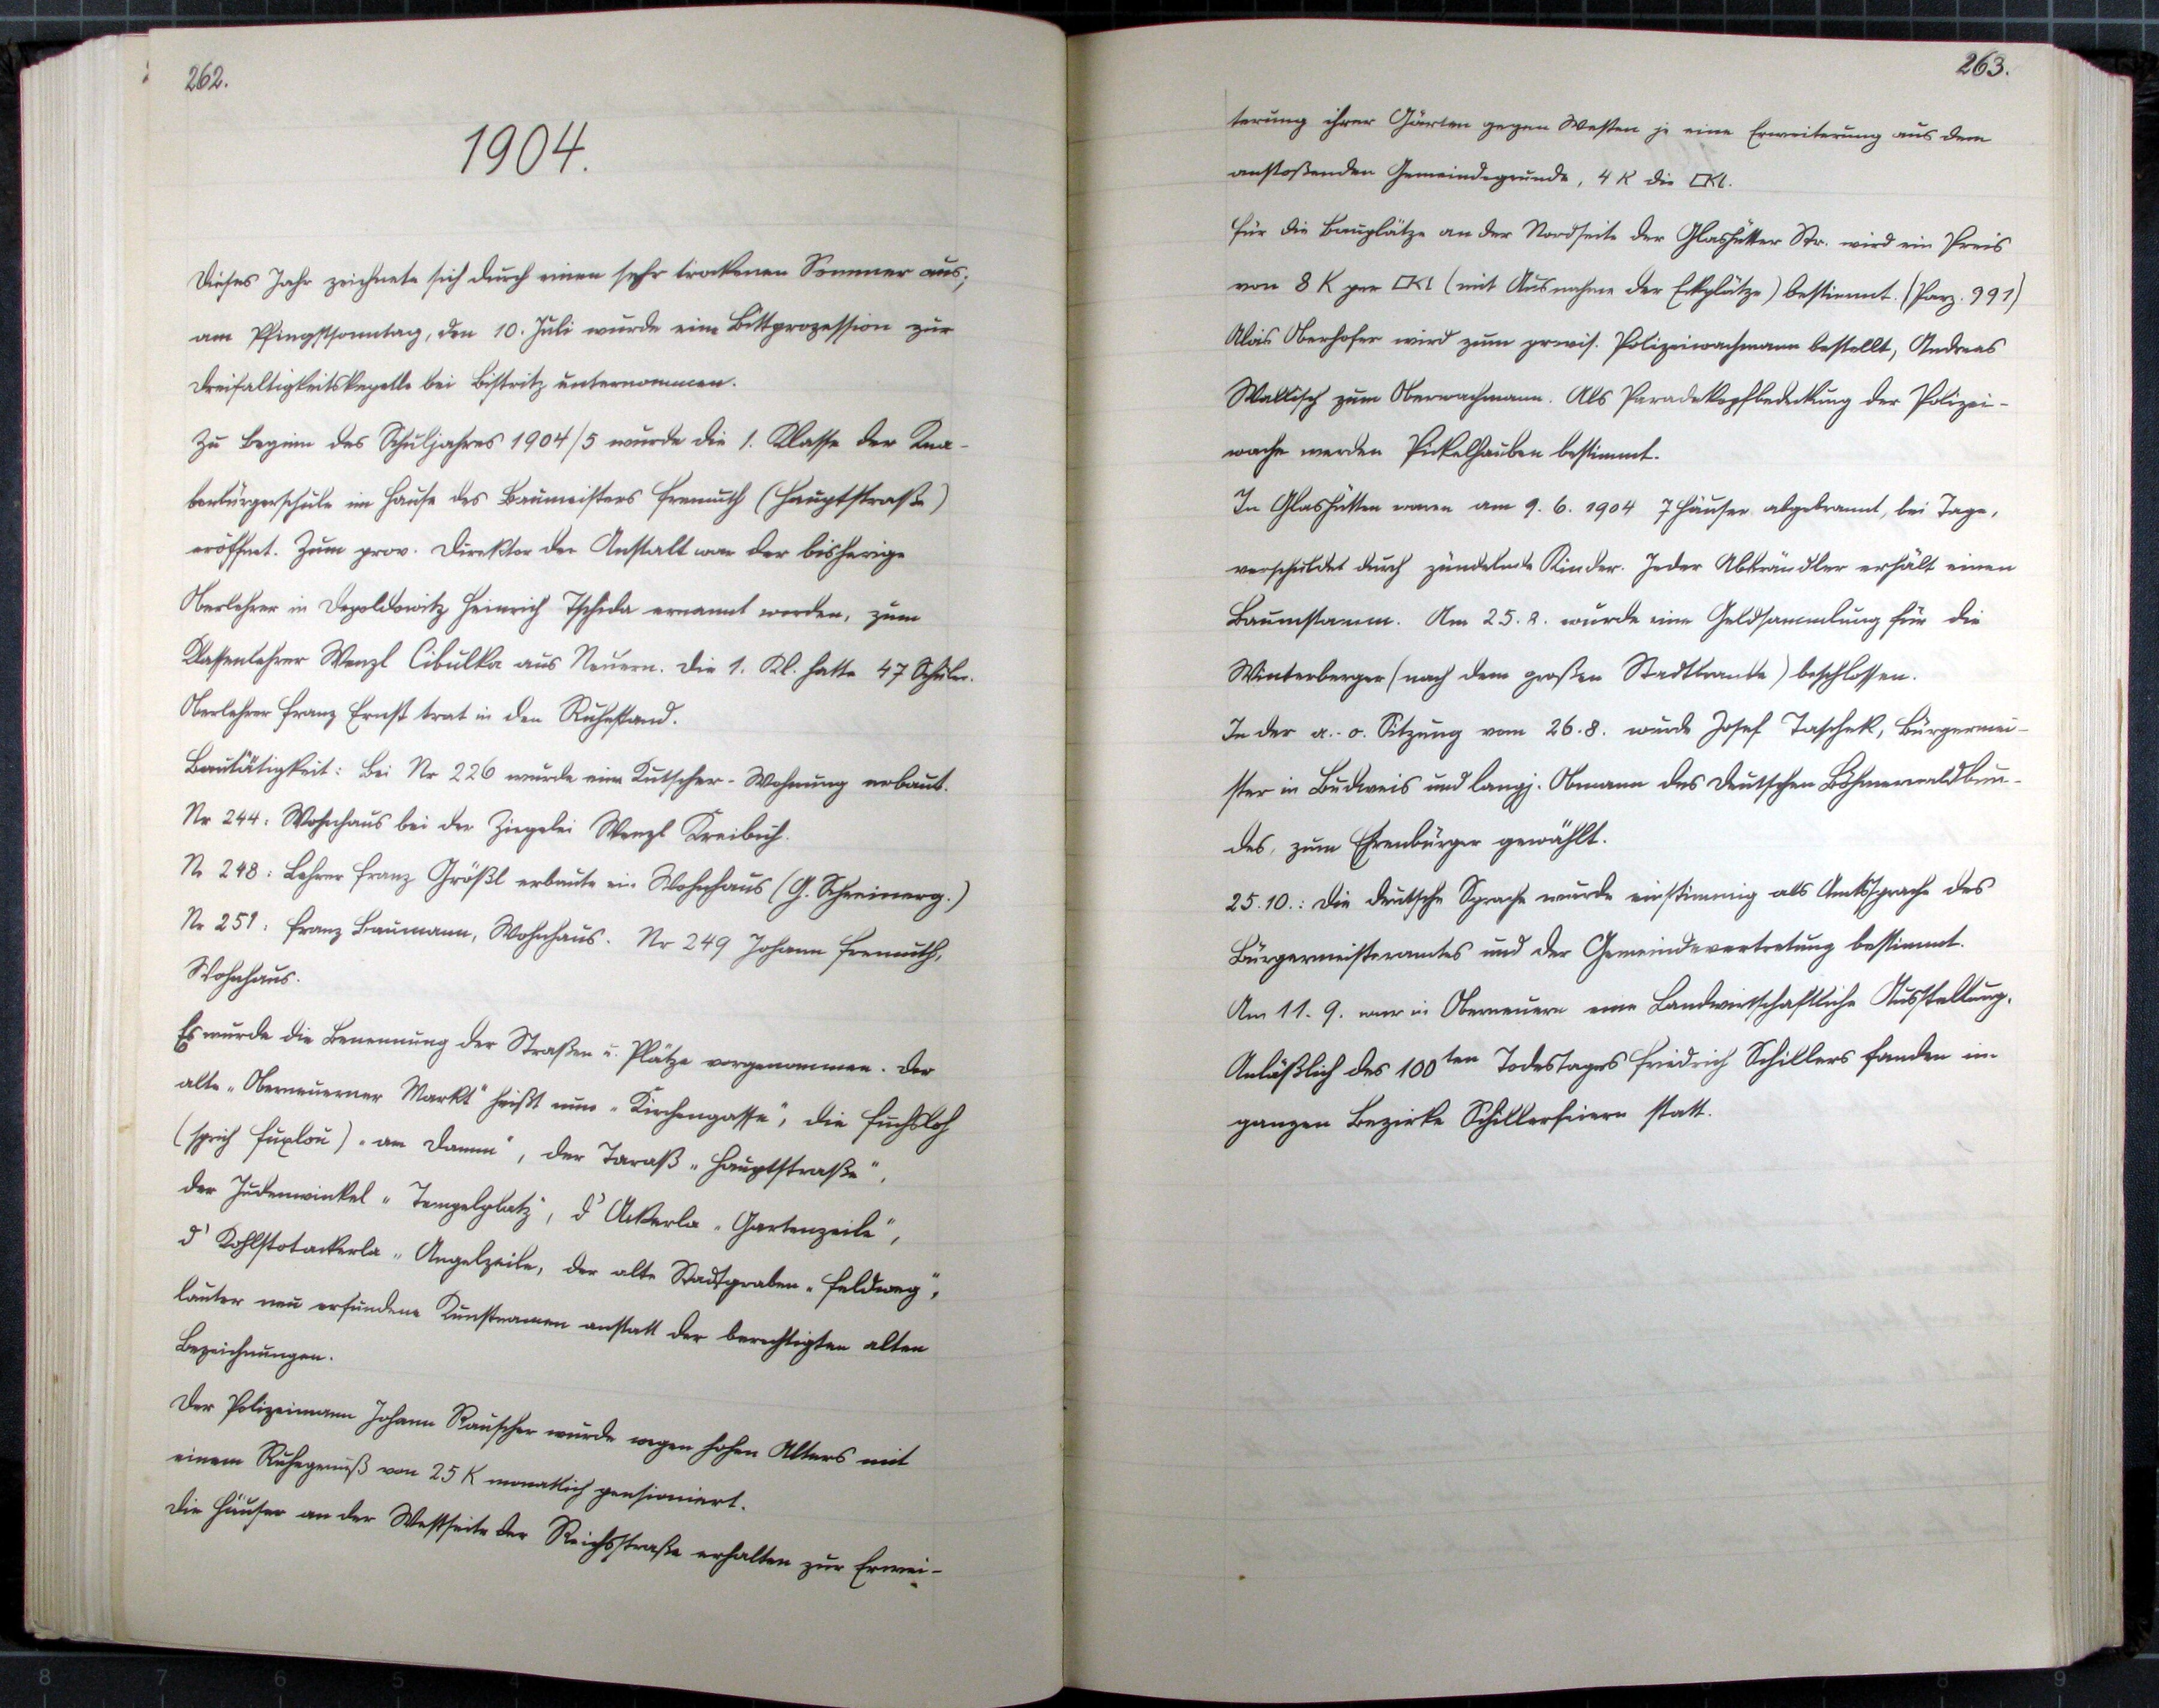 262.
1904.
Dieses Jahr zeichnete sich durch einen sehr trockenen Sommer aus;
am Pfingstsonntag, den 10. Juli wurde eine Bittprozession zur
Dreifaltigkeitskapelle bei Bistritz unternommen.
Zu Beginn des Schuljahres 1904/5 wurde die 1. Klasse der Kna-
benbürgerschule im Hause des Baumeisters Fremuth (Hauptstraße)
eröffnet. Zum prov. Direktor der Anstalt war der bisherige
Oberlehrer in Depoldowitz Heinrich Tschida ernannt worden, zum
Klassenlehrer Wenzl Cibulka aus Neuern. Die 1. Kl. hatte 47 Schüler.
Oberlehrer Franz Ernst trat in den Ruhestand.
Bautätigkeit: Bei Nr 226 wurde eine Kutscher-Wohnung erbaut.
Nr 244: Wohnhaus bei der Ziegelei Wenzl Kreibich.
Nr 248: Lehrer Franz Größl erbaute ein Wohnhaus (G. Schreinerg.)
Nr 251: Franz Baumann, Wohnhaus. Nr 249 Johann Fremuth,
Wohnhaus.
Es wurde die Benennung der Straßen u. Plätze vorgenommen. Der
alte „Oberneuerner Markt" heißt nun „Kirchengasse", die Fuchsloh
(sprich Fuxlou) „am Damm", der Taraß „Hauptstraße",
der Judenwinkel „Tempelplatz", d' Ackerla „Gartenzeile",
d' Kohlstotackerla „Angelzeile, der alte Stadtgraben „Feldweg",
lauter neu erfundene Kunstnamen anstatt der berechtigten alten
Bezeichnungen.
Der Polizeimann Johann Rauscher wurde wegen hohen Alters mit
einem Ruhegenuß von 25 K monatlich pensioniert.
Die Häuser an der Westseite der Reichsstraße erhalten zur Erwei-
263.
terung ihrer Gärten gegen Westen je eine Erweiterung aus dem
anstoßenden Gemeindegrunde, 4 K die □Kl.
Für die Bauplätze an der Nordseite der Glashütter Str. wird ein Preis
von 8 K per □Kl (mit Ausnahme der Eckplätze) bestimmt. (Parz. 991)
Alois Oberhofer wird zum provis. Polizeiwachmann bestellt, Andreas
Wallisch zum Oberwachmann. Als Paradekopfbedeckung der Polizei-
wache werden Pickelhauben bestimmt.
In Glashütten waren am 9. 6. 1904 7 Häuser abgebrannt, bei Tage,
verschuldet durch zündelnde Kinder. Jeder Abbrändler erhält einen
Baumstamm. Am 25. 2. wurde eine Geldsammlung für die
Winterberger (nach dem großen Stadtbrande) beschlossen.
In der a.-o. Sitzung vom 26. 8. wurde Josef Taschek, Bürgermei-
ster in Budweis und langj. Obmann des Deutschen Böhmerwaldbun-
des, zum Ehrenbürger gewählt.
25. 10.: Die deutsche Sprache wurde einstimmig als Amtssprache des
Bürgermeisteramtes und der Gemeindevertretung bestimmt.
Am 11. 9. war in Oberneuern eine Landwirtschaftliche Ausstellung.
Anläßlich des 100ten Todestages Friedrich Schillers fanden im
ganzen Bezirke Schillerfeiern statt.
8 7 6 5 8 9